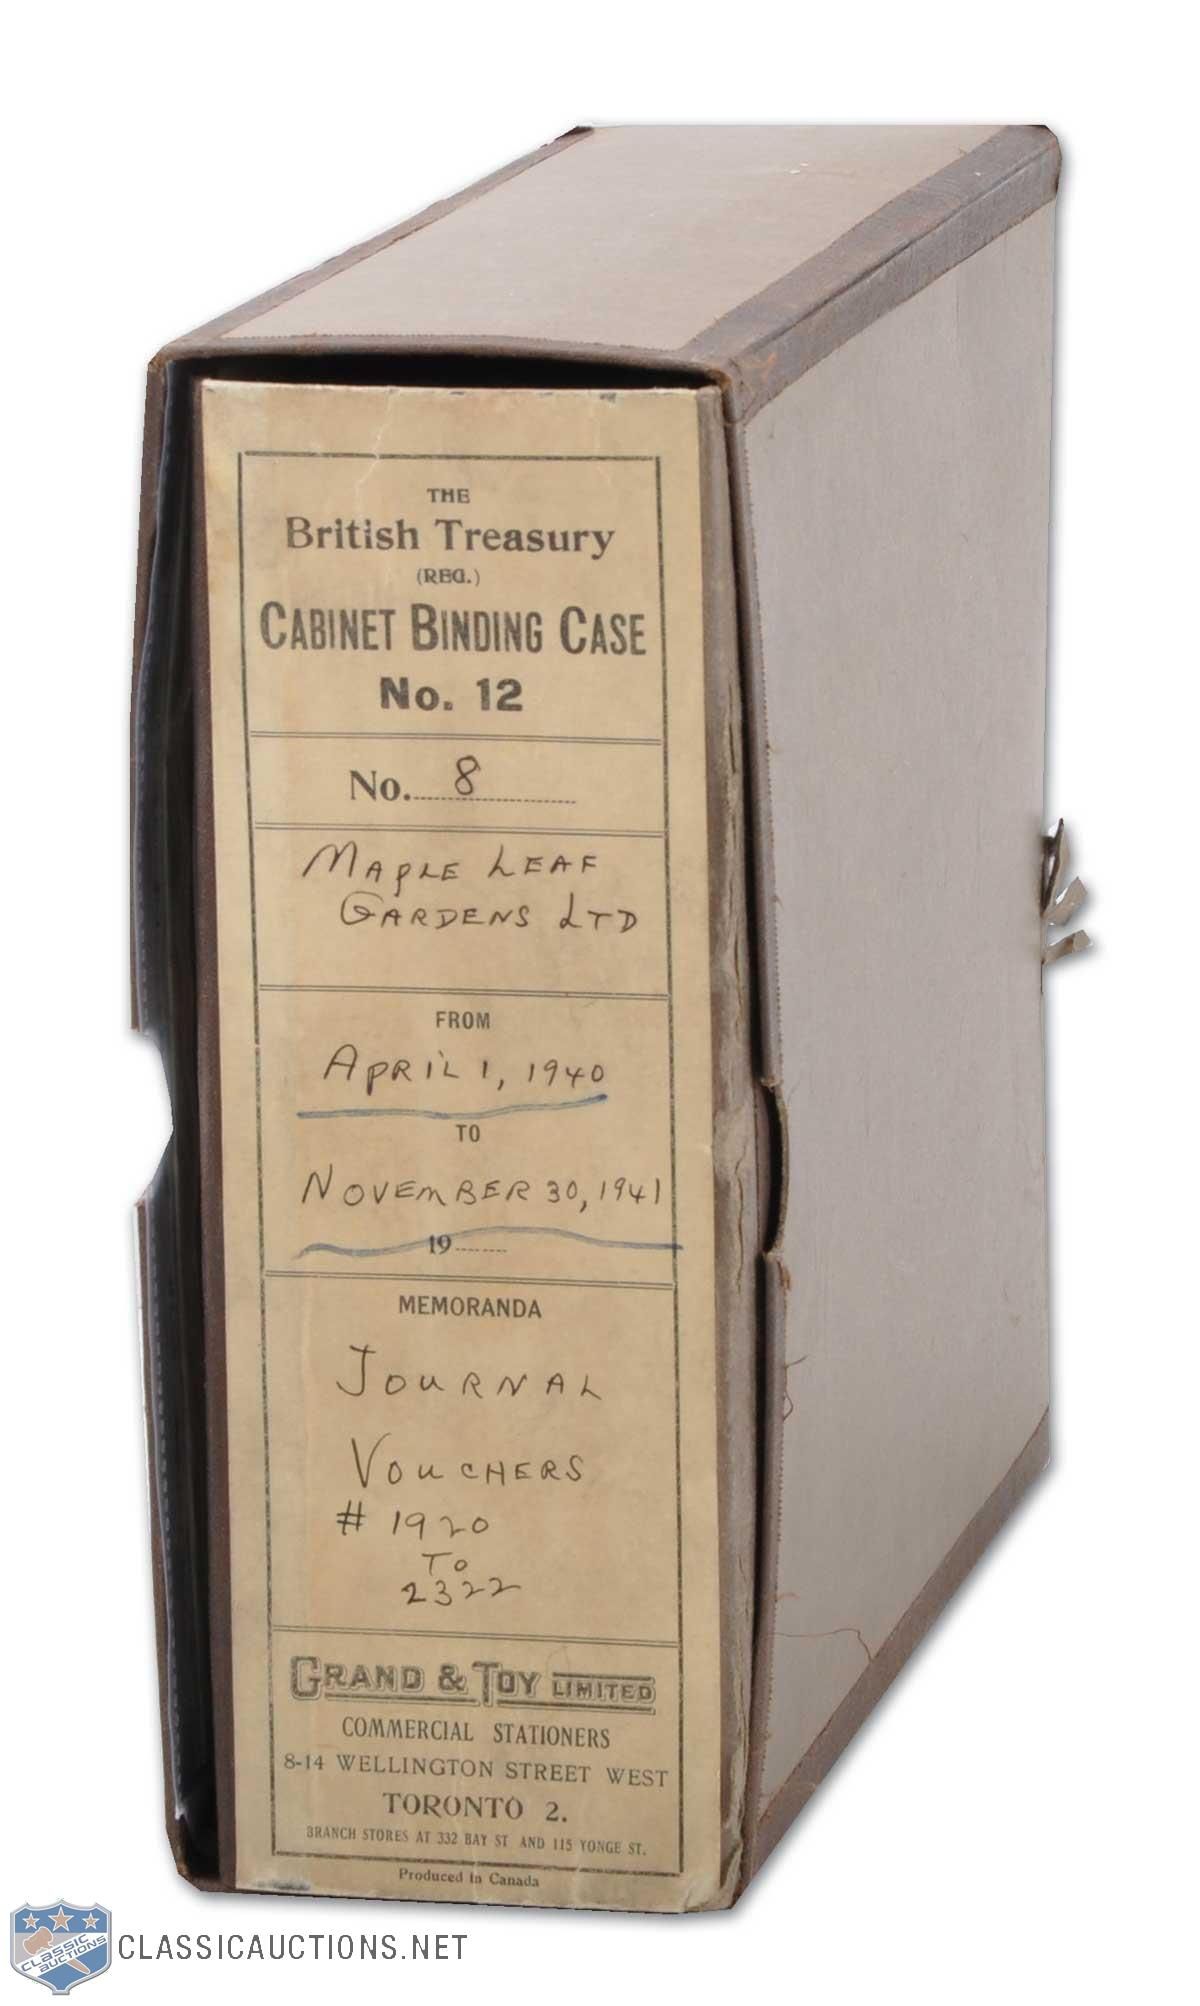 THE
British Treasury
(REG.)
CABINET BINDING CASE
No. 12
No. 8
MAPLE LEAF
GARDENS LTD
FROM
APRIL 1, 1940
TO
NOVEMBER 30, 1941
19
MEMORANDA
JOURNAL
VOUCHERS
# 1920
TO
2322
GRAND & TOY LIMITED
COMMERCIAL STATIONERS
8-14 WELLINGTON STREET WEST
TORONTO 2.
BRANCH STORES AT 332 BAY ST AND 115 YONGE ST.
Produced in Canada
CLASSIC
AUCTIONS
CLASSICAUCTIONS.NET